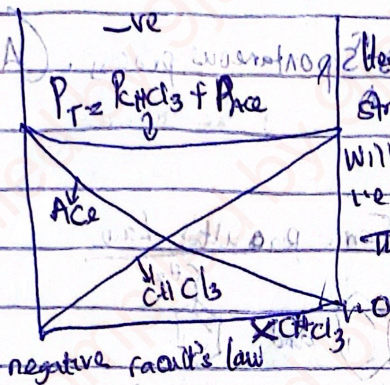 -ve
PT = PCHCl3 + PAce
Ace
CHCl3
XCHCl3
negative raoult's law
Will